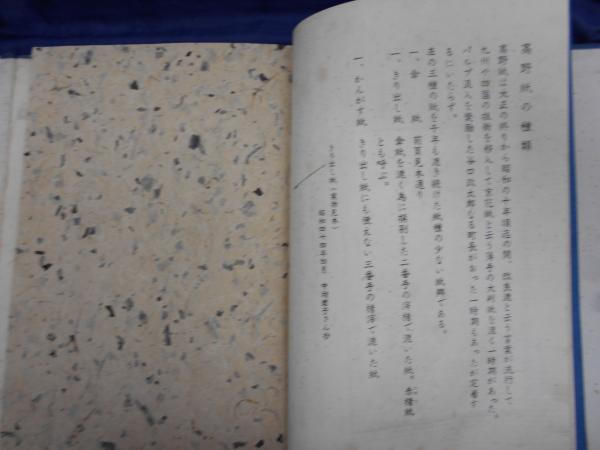 高野紙の種類
高野紙は大正の終りから昭和の十年接近の間、改良漉と云う言葉が流行して
九州や四国の技術を移入して京花紙と云う薄手の大判紙を漉く一時期があった。
パルプ混入を奨励した谷口 太郎なる町長があった一時期もあったが定着す
るにいたらず。
左の三種の紙を千年も漉き続けた紙種の少ない紙郷である。
一、傘　紙　前頁見本通り
一、きり出し紙　傘紙を漉く為に撰別した二番手の 楮で漉いた紙。 楮紙
とも呼ぶ。
一、かんがす紙　きり出し紙にも使えない三番手の楮滓で漉いた紙
きり出し紙（実物見本）
昭和四十四年四月　中 子さん抄